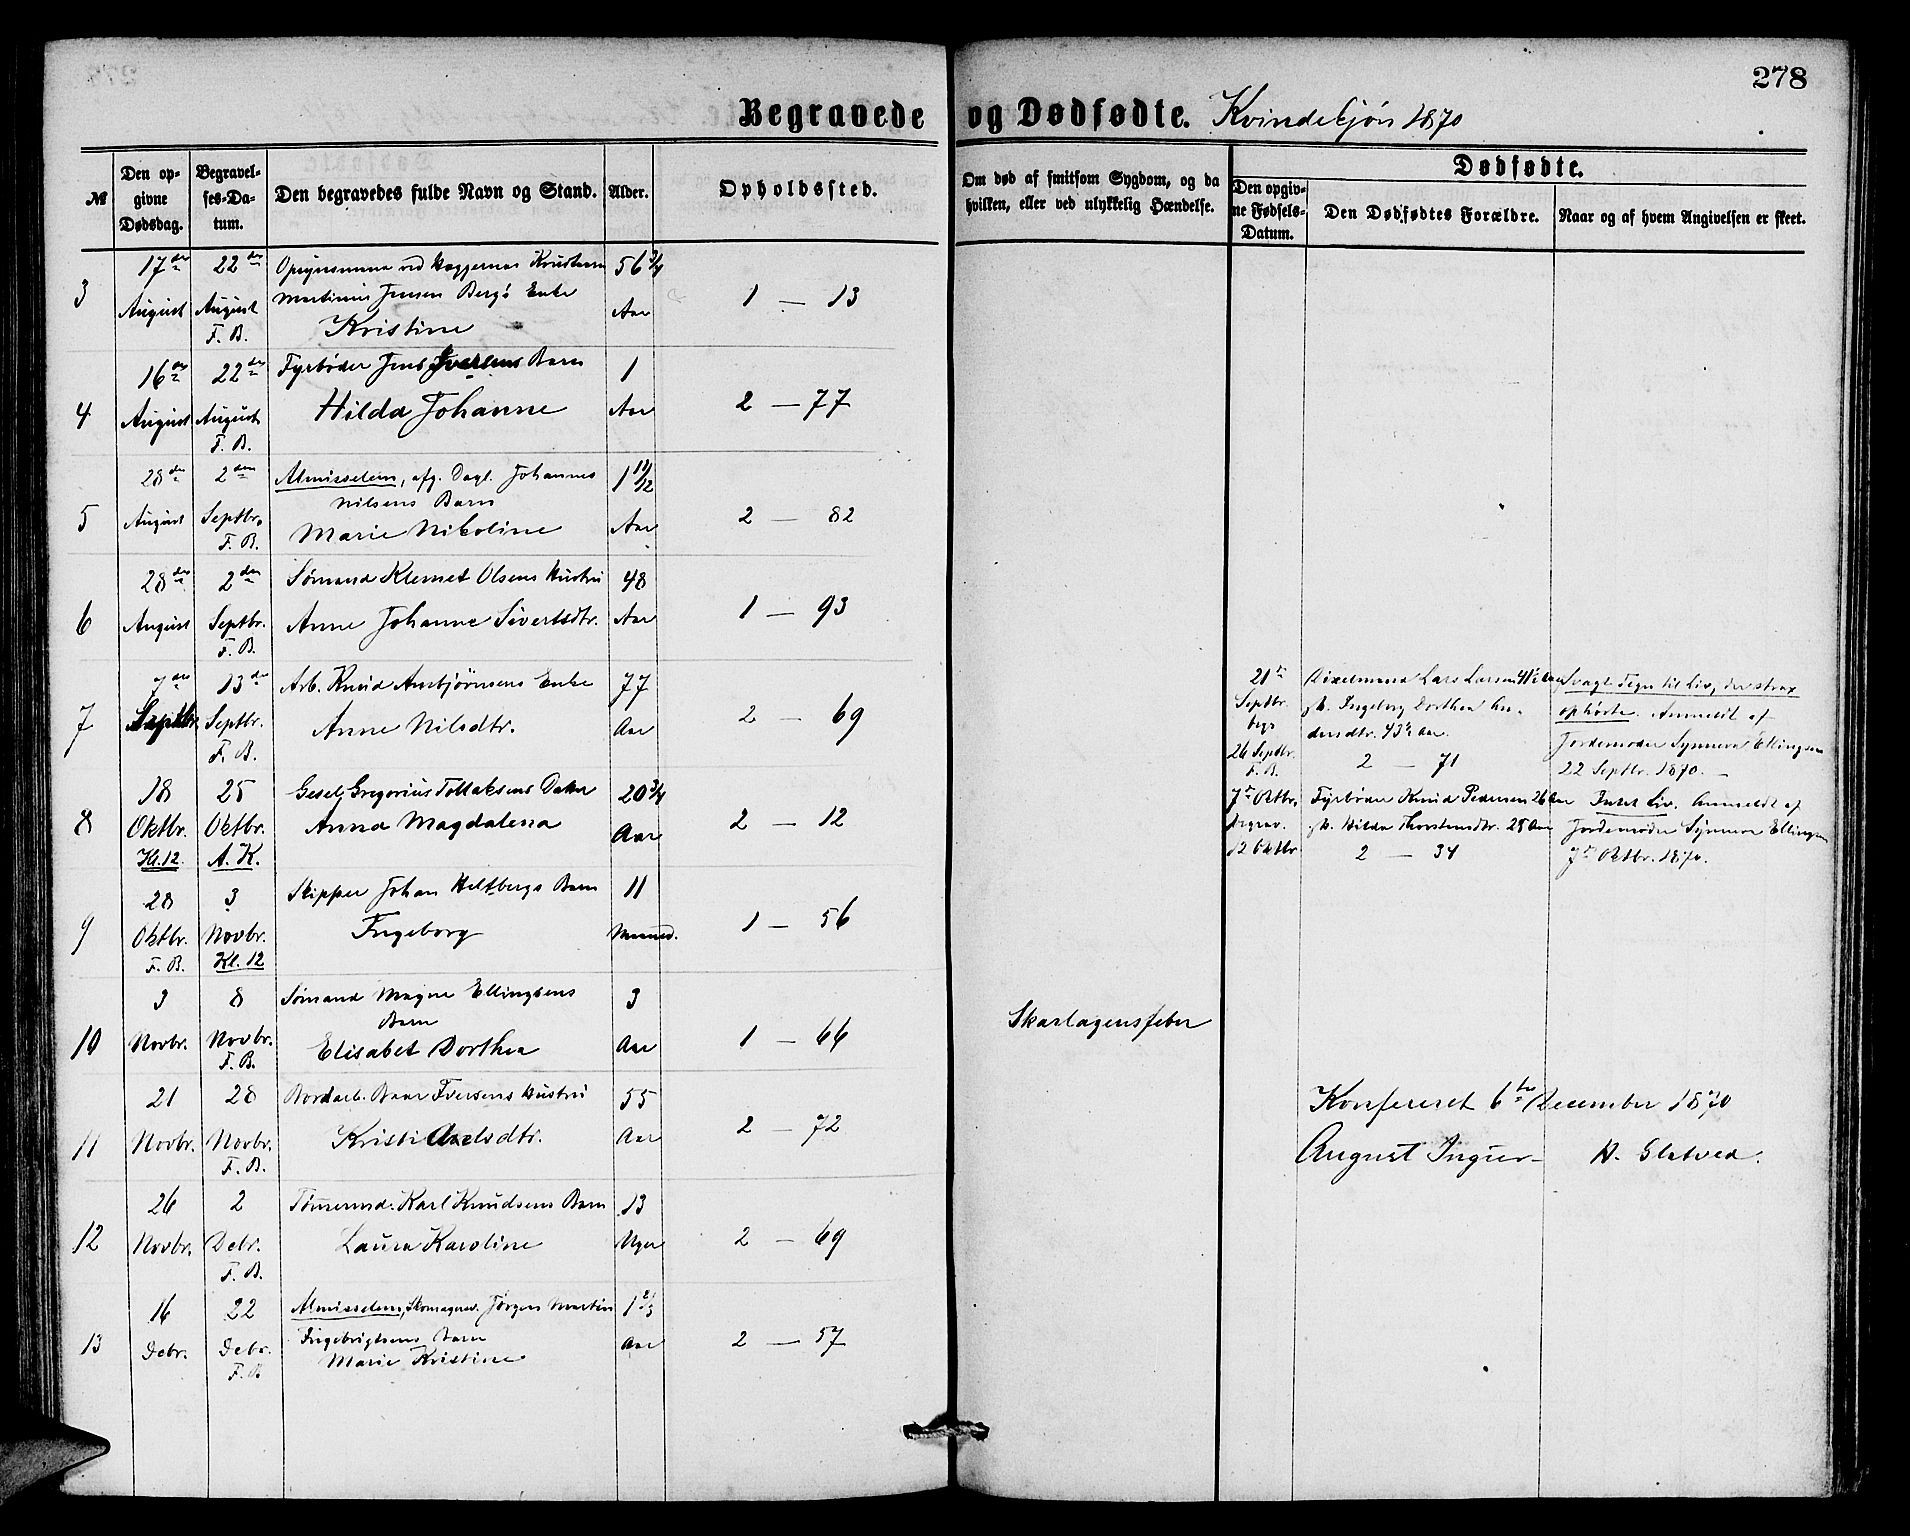 278
Begravede og Dødfødte. Kvindekjøn 1870
№
Den opgivne Dødsdag.
Begravelses-Datum.
Den begravedes fulde Navn og Stand.
Alder.
Opholdssted.
Om død af smitsom Sygdom, og da hvilken, eller ved ulykkelig Hændelse.
Dødfødte.
Den opgivne Fødsels-Datum.
Den Dødfødtes Forældre.
Naar og af hvem Angivelsen er skeet.
3
17de August
22de August F. B.
Opsynsmand ved
Martinus Jensen Bergs Enke
Kristine
56 3/4 Aar
1 — 13
4
16de August
22de August F. B.
Fyrbøder Jens Iversens Barn
Hilda Johanne
1 Aar
2 — 77
5
28de August
2den Septbr. F. B.
Almisselem, afg. Dagl. Johannes
Nilsens Barn
Marie Nikoline
1 11/12 Aar
2 — 82
6
28de August
2den Septbr. F. B.
Sømand Klemet Olsens Hustru
Anne Johanne Sivertsdtr.
48 Aar
1 — 93
7
7de Septbr.
13de Septbr. F. B.
Arb. Knud Ansbjørnsens Enke
Anne Nilsdtr.
77 Aar
2 — 69
8
18 Oktbr. Kl. 12
25 Oktbr. A. K.
Gesel Gregorius Tollaksens Datter
Anna Magdalena
20 3/4 Aar
2 — 12
9
28 Oktbr. F. B.
3 Novbr. Kl. 12
Skipper Johan Heltbergs Barn
Ingeborg
11 Maaned.
1 — 56
10
3 Novbr.
8 Novbr. F. B.
Sømand Magne Ellingsens
Barn
Elisabet Dorthea
3 Aar
1 — 66
Skarlagensfeber
11
21 Novbr.
28 Novbr. F. B.
Bordarb. Baar Iversens Hustru
Kristi Axelsdtr.
55 Aar
2 — 72
12
26 Novbr.
2 Debr. F. B.
Tømermd. Karl Knudsens Barn
Laura Karoline
13 Uger
2 — 69
13
16 Debr.
22 Debr. F. B
Almisselem, Skomagersv. Jørgen Martin
Ingebrigtsens Barn
Marie Kristine
1 2/3 Aar
2 — 57
21de
Septbr.
begr
26 Septbr.
F. B.
Lars Larsen 41½ Aar
og h. Ingeborg Dorthea An-
dersdtr. 43½ Aar.
2 — 71
Svagt Tegn til Liv, der strax
ophørte. Anmeldt af
Jordemoder Synneva Ellingsen
22 Septbr. 1870.
7de Oktbr.
begrav.
12 Oktbr
Fyrbøder Knud Pedersen 26 Aar
og h. Hilda Thorstensdtr. 28 Aar
2 — 34
Intet Liv. Anmeldt af
Jordemoder Synneva Ellingsen
7de Oktbr. 1870.
Konfereret 6te December 1870
August Ingier